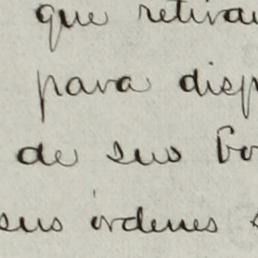 que retira
para disp
de sus bo
sus órdenes